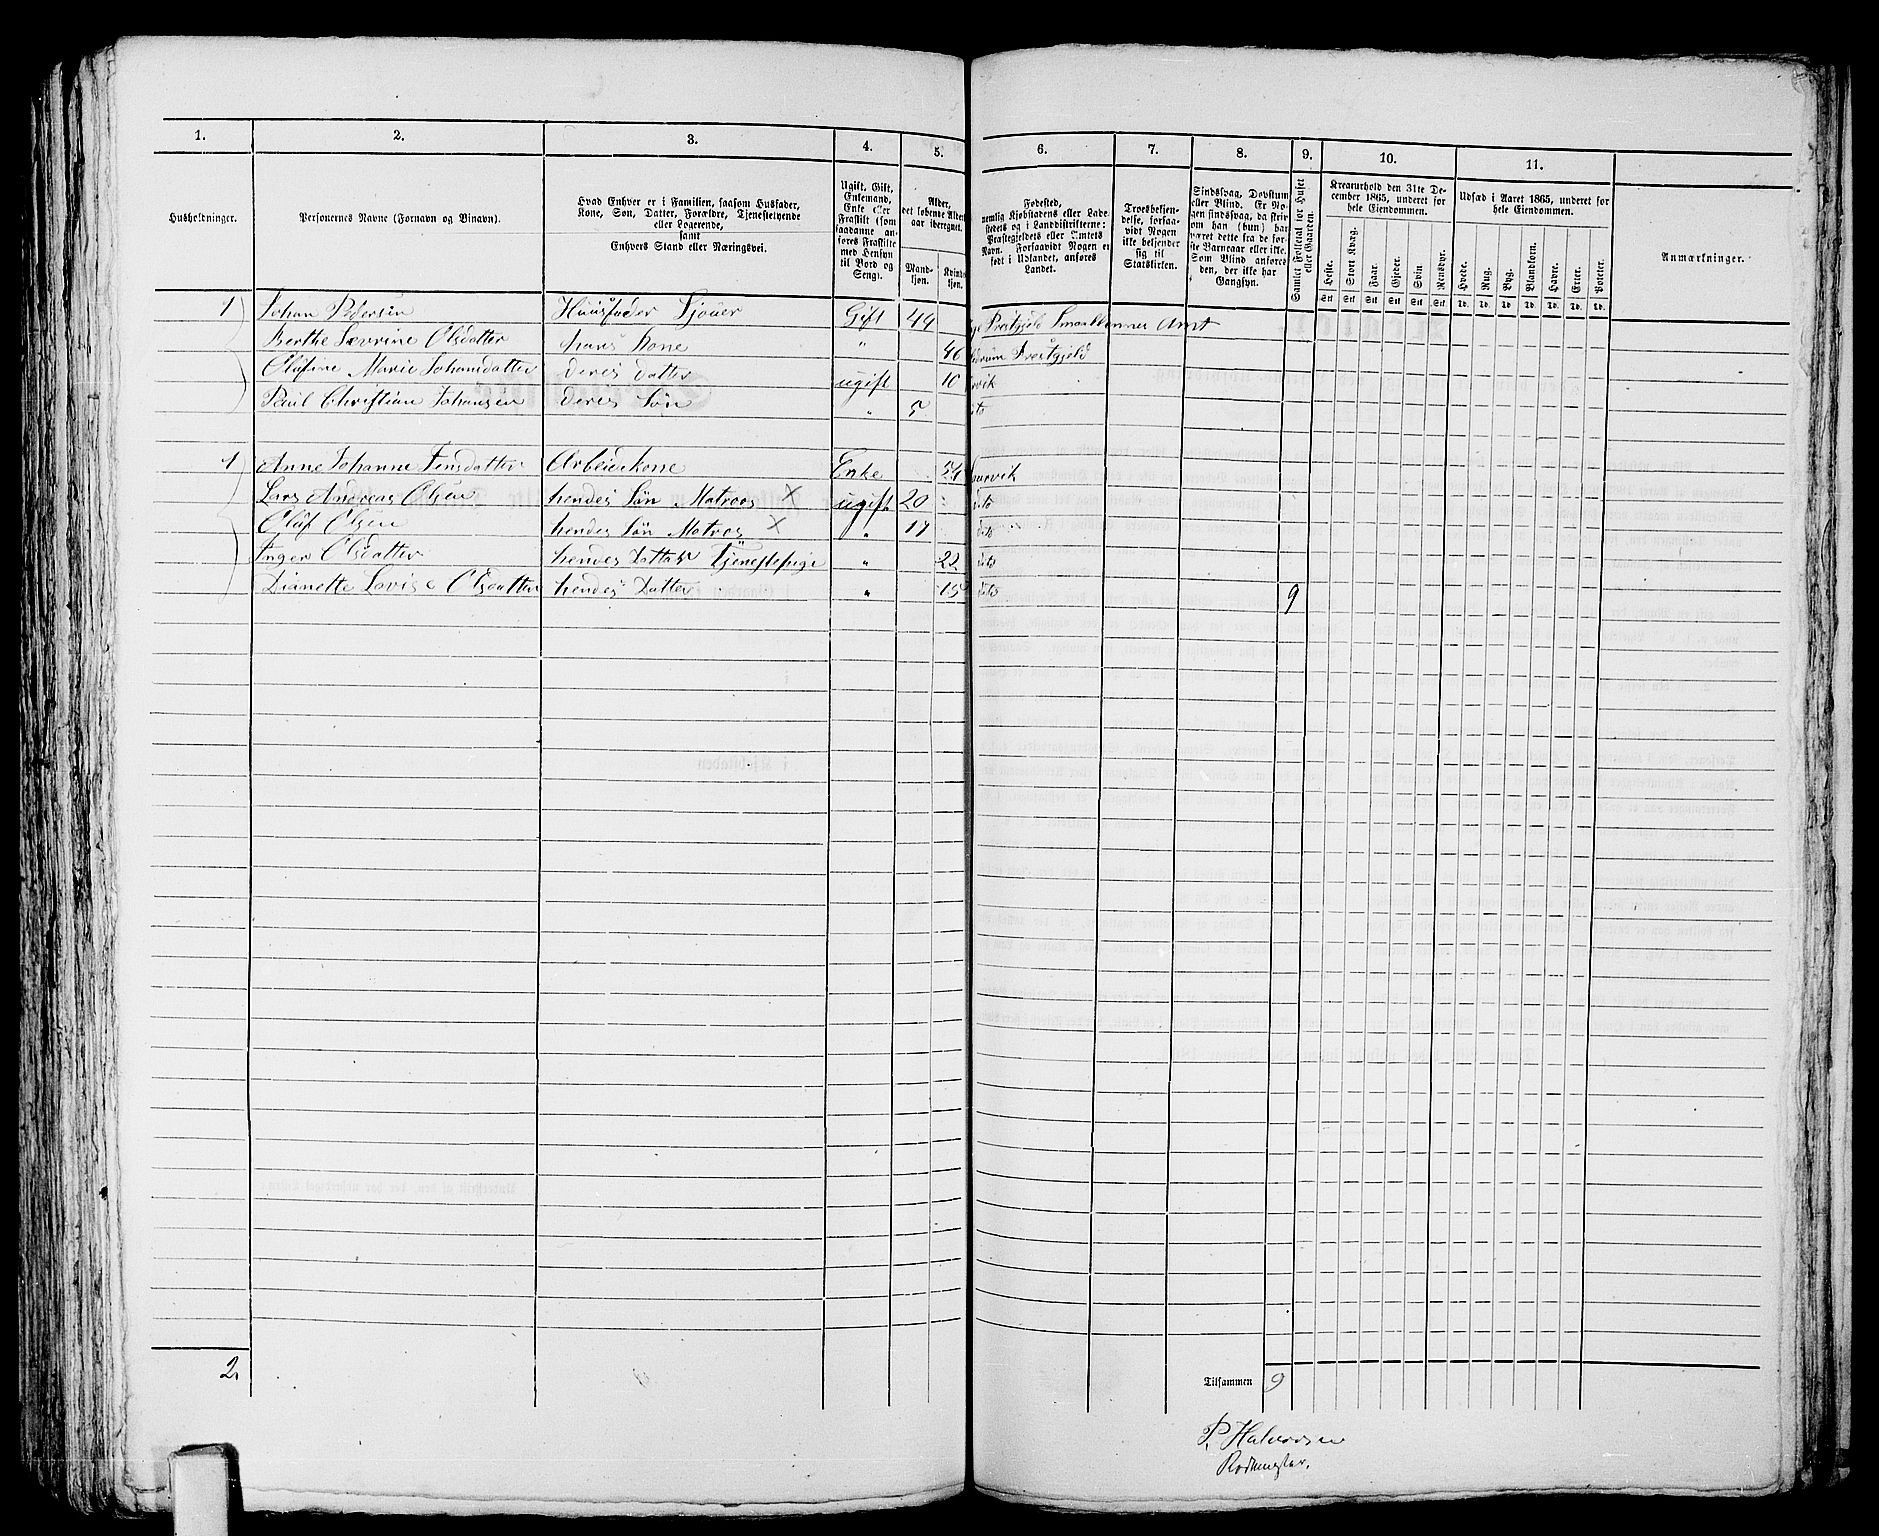 1. 2. 3. 4. 5. 6. 7. 8. 9. 10. 11.
Husholdninger.
Personernes Navne (Fornavn og Binavn).
Hvad Enhver er i Familien, saasom Husfader,
Kone, Søn, Datter, Forældre, Tjenestetyende
eller Logerende,
samt
Enhvers Stand eller Næringsvei.
Ugift, Gift,
Enkemand,
Enke eller
Fraskilt (som
saadanne an-
føres Fraskilte
med Hensyn
til Bord og
Seng).
Alder,
det løbende Alders-
aar iberegnet.
Mand-
kjøn.
Kvinde-
kjøn.
Fødested,
nemlig Kjøbstadens eller Lade-
stedets og i Landdistrikterne:
Præstegjeldets eller Amtets
Navn. Forsaavidt Nogen er
født i Udlandet, anføres
Landet.
Troesbekjen-
delse, forsaa-
vidt Nogen
ikke bekjender
sig til
Statskirken.
Sindssvag, Døvstum
eller Blind. Er No-
gen sindssvag, da skriv
om han (hun) har
været dette fra de før-
ste Barneaar eller ikke.
Som Blind anføres
den, der ikke har
Gangsyn.
Samlet Folketal for Huset
eller Gaarden.
Kreaturhold den 31te De-
cember 1865, underet for
hele Eiendommen.
Heste. Stort Kvæg. Faar. Gjeder. Svin. Rensdyr.
Stk Stk Stk Stk Stk Stk
Udsæd i Aaret 1865, underet for
hele Eiendommen.
Hvede. Rug. Byg. Blandkorn. Havre. Erter. Poteter.
Td. Td. Td. Td. Td. Td. Td.
Anmærkninger.
1 Johan Pedersen Huusfader Sjouer Gift 44 Prestgjeld Smaalenenes Amt
Berthe Sævrine Olsdatter hans Kone " 46 Prestgjeld
Olafine Marie Johansdatter deres datter ugift 10 rvik
Paul Christian Johansen deres Søn " 5 ito
1 Anne Johanne Jensdatter Arbeidskone Enke 54 aurvik
Lars Andreas Olsen hendes Søn Matroes X ugift 20 dito
Oluf Olsen hendes Søn Matros X " 17 dito
Inger Olsdatter hendes Datter Tjenestepige " 22 dito
Dianette Lovise Olsdatter hendes Datter " 15 dito 9
2.
Tilsammen 9
P. Halvorsen
Rodemester.